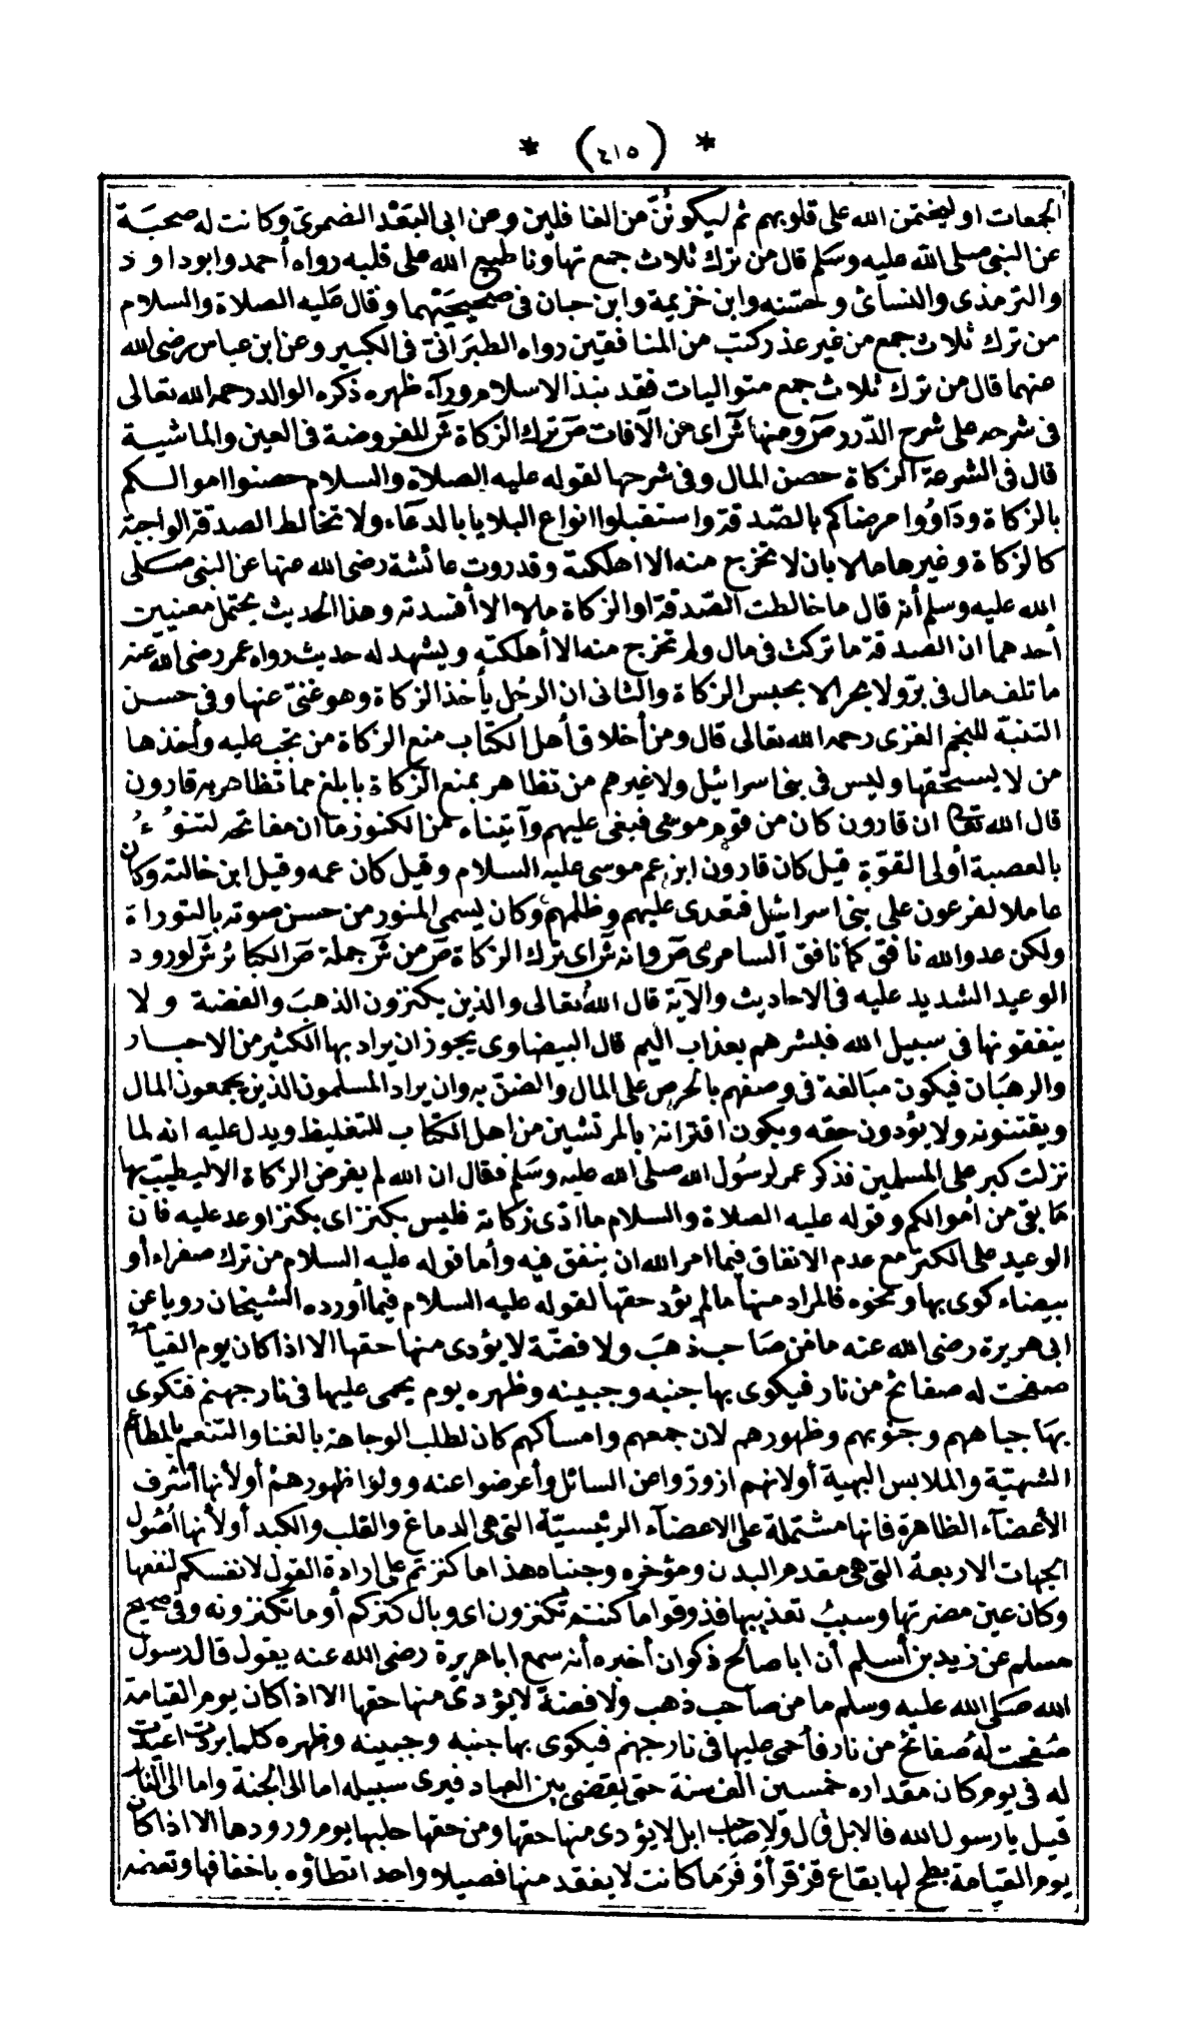 * (٤١٥) *
الجمعات او ليختمن الله على قلوبهم ثم ليكونُنّ من الغافلين وعن ابى الجَعْد الضمرى وكانت له صحبَة
عن النبى صلى الله عليه وسَلم قال من ترك ثلاث جمع تهاونا طبع الله على قلبه رواه أحمد وابوداود
والترمذى والنسائى وحسّنه وابن خزيمة وابن حبان فى صحيحَيْهما وقال عَليه الصلاة والسلام
من ترك ثلاث جمع من غير عذر كتب من المنافقين رواه الطبَرانىّ فى الكبير وعن ابن عباس رضى الله
عنهما قال من ترك ثلاث جمع متواليات فقد نبذ الاسلام ورآء ظهره ذكره الوالد رحمه الله تعالى
فى شرحه على شرح الدّرر صَ ومنها شَ اى من الآفات صَ ترك الزكاة شَ المفروضة فى العين والماشية
قال فى الشرعة الزكاة حصن المال وفى شرحها لقوله عليه الصلاة والسلام حصنوا اموالكم
بالزكاة ودَاوُوا مرضاكم بالصّدقة واستقبلوا انواع البلايا بالدعاء ولا تخالط الصدقة الواجبة
كالزكاة وغيرها مالا بان لا تخرج منه الا اهلكتة وقد روت عائشة رضى الله عنها عن النبى صَلى
الله عليه وسلم أنه قال ما خالطت الصّدقة او الزكاة مالا الا أفسدته وهذا الحديث يحتمل معنيين
أحدهما ان الصدقة ما تركت فى مال ولم تخرج منه الا أهلكته ويشهد له حديث رواه عمر رضى الله عنه
ما تلف مال فى برّ ولا بحر الا بحبس الزكاة والثانى ان الرجُل يأخذ الزكاة وهو غنىّ عنها وفى حسن
التنبّه للنجم الغزى رحمه الله تعالى قال ومن أخلاق أهل الكتاب منع الزكاة من تجب عليه وأخذها
من لا يستحقها وليس فى بنى اسرائيل ولا غيرهم من تظاهر بمنع الزكاة بابلغ مما تظاهر به قارون
قال الله تعالى ان قارون كان من قوم موسى فبغى عليهم وآتيناه من الكنوز ما ان مفاتحه لتنوءُ
بالعصبة أولى القوّة قيل كان قارون ابن عم موسى عليه السلام وقيل كان عمه وقيل ابن خالته وكان
عاملا لفرعون على بنى اسرائيل فتعدى عليهم وظلمهم وكان يسمى المنور من حسن صوته بالتوراة
ولكن عدو الله نافق كما نافق السامرى صَ وانه شَ اى ترك الزكاة صَ من شَ جملة صَ الكبائر شَ لورود
الوعيد الشديد عليه فى الاحاديث والآية قال الله تعالى والذين يكنزون الذهبَ والفضة ولا
ينفقونها فى سبيل الله فبشرهم بعذاب اليم قال البيضاوى يجوز ان يراد بها الكثير من الاحبار
والرهبَان فيكون مبَالغة فى وصفهم بالحرص على المال والضنّ به وان يراد المسلمون الذين يجمعون المال
ويقتنونه ولا يؤدون حقه ويكون اقترانه بالمرتشين من اهل الكتاب للتغليظ ويدل عليه انه لما
نزلت كبر على المسلمين فذكر عمر لرسُول الله صلى الله عليه وسَلم فقال ان الله لم يفرض الزكاة الا ليطيب بها
مَا بقى من أموالكم وقوله عليه الصلاة والسلام ما ادّى زكاته فليس بكنز اى بكنز اوعد عليه فان
الوعيد على الكنز مع عدم الانفاق فيما امر الله ان ينفق فيه وأما قوله عليه السلام من ترك صفراء أو
بيضاء كوى بها ونحوه فالمراد منها ما لم يؤد حقها لقوله عليه السلام فيما أورده الشيخان رويا عن
ابى هريرة رضى الله عنه ما من صَاحب ذهبَ ولا فضّة لا يؤدى منها حقها الا اذا كان يوم القيامة
صفحت له صفائح من نار فيكوى بها جنبه وجبينه وظهره يوم يحمى عليها فى نار جهنم فتكوى
بهَا جباههم وجنوبهم وظهورهم لان جمعهم وامساكهم كان لطلب الوجاهة بالغنا والتنعم بالمطاعم
الشهيّة والملابس البهية أو لانهم ازورّوا عن السائل وأعرضوا عنه وولوا ظهورهمْ أو لأنها أشرف
الأعضآء الظاهرة فانها مشتملة على الاعضآء الرئيسيّة التى هى الدماغ والقلب والكبد أو لأنها اصُول
الجهات الاربعة التى هى مقدم البدن ومؤخره وجنباه هذا ما كنزتم على ارادة القول لانفسكم لنفعها
وكان عين مضرتها وسببُ تعذيبها فذوقوا ما كنتم تكنزون اى وبال كنزكم أو ما تكنزونه وفى صحيح
مسلم عن زيد بن أسلم أن ابا صالح ذكوان أخبره أنه سمع ابا هريرة رضى الله عنه يقول قال رسول
الله صَلى الله عليه وسلم ما من صاحب ذهب ولا فضة لا يؤدى منها حقها الا اذا كان يوم القيامة
صُفحت له صُفائح من نار فأحمى عليها فى نار جهنم فيكوى بها جنبه وجبينه وظهره كلما بردت اعيدت
له فى يوم كان مقداره خمسين الف سنة حتى يقضى بين العباد فيرى سبيله اما الى الجنة واما الى النار
قيل يا رسول الله فالابل قال ولا صاحب ابل لا يؤدى منها حقها ومن حقها حلبها يوم ورودها الا اذا كان
يوم القيامة بطح لها بقاع قَرْقر أوْفَرَ ما كانت لا يفقد منها فصيلا واحدا تطأؤه باخفافها وتعضه